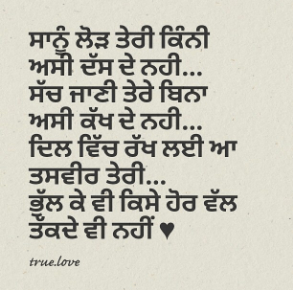 ਸਾਨੂੰ ਲੋੜ ਤੇਰੀ ਕਿੰਨੀ
ਅਸੀ ਦੱਸ ਦੇ ਨਹੀ...
ਸੱਚ ਜਾਣੀ ਤੇਰੇ ਬਿਨਾ
ਅਸੀ ਕੱਖ ਦੇ ਨਹੀ...
ਦਿਲ ਵਿੱਚ ਰੱਖ ਲਈ ਆ
ਤਸਵੀਰ ਤੇਰੀ...
ਭੁੱਲ ਕੇ ਵੀ ਕਿਸੇ ਹੋਰ ਵੱਲ
ਤੱਕਦੇ ਵੀ ਨਹੀਂ ♥
true.love